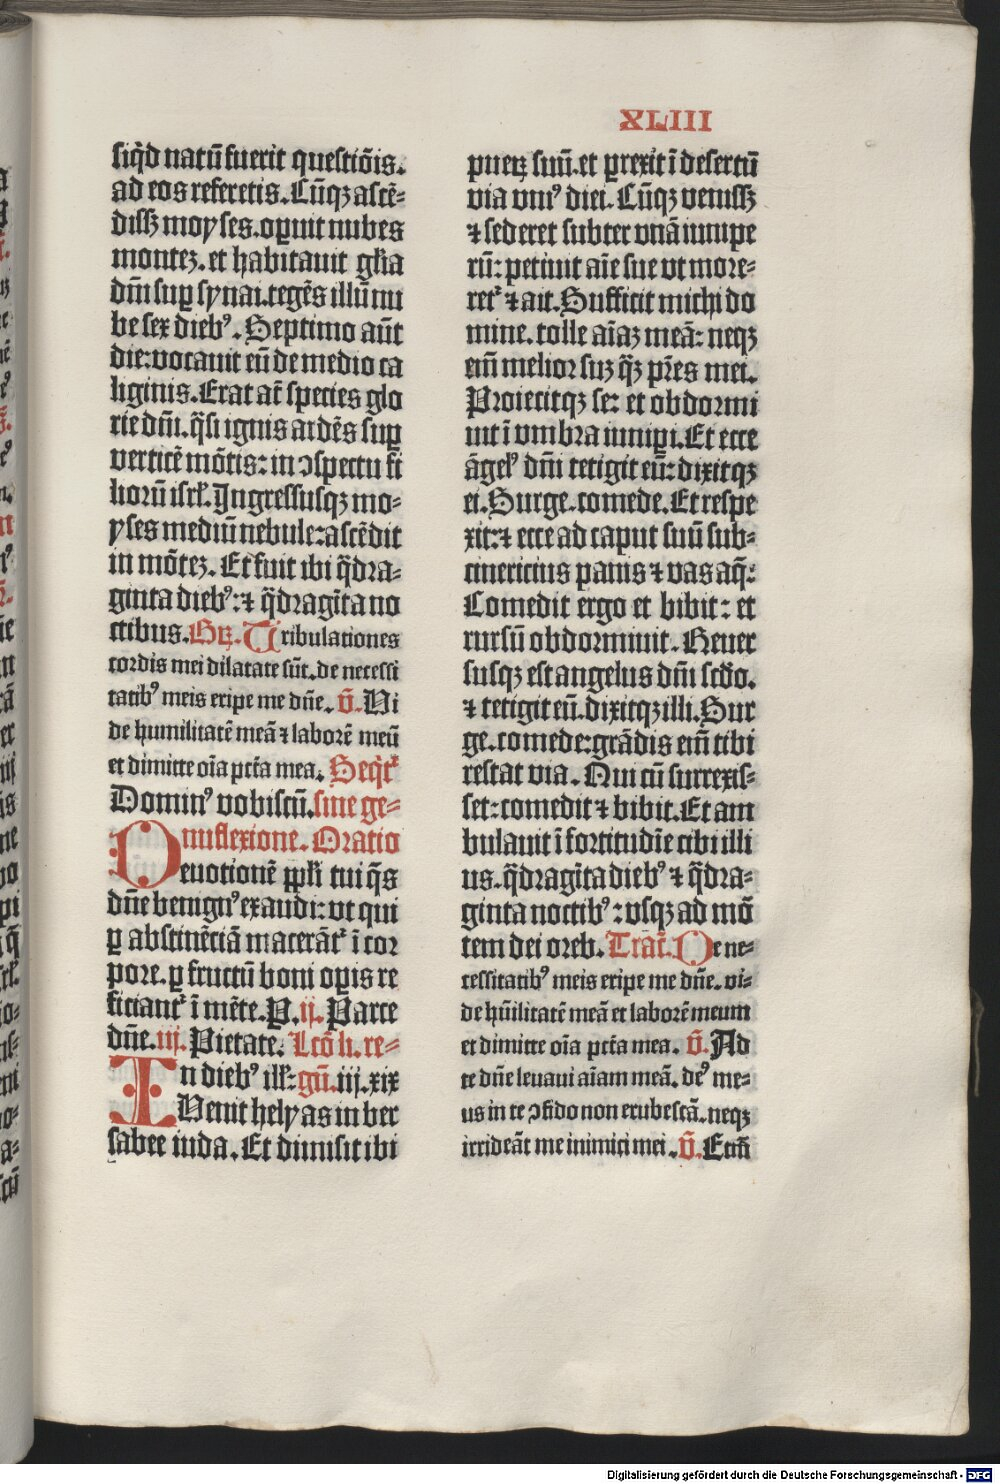 XLIII
siq̄d natū fuerit questiōis.
ad eos referetis. Cūqꝫ ascē-
dissꝫ moyses. opuit nubes
monteꝫ. et habitauit gl̄ia
dn̄i suꝑ synai. tegēs illū nu
be sex diebꝰ. Septimo aūt
die: vocauit eū de medio ca
liginis. Erat at̄ species glo
rie dn̄i. q̄si ignis ardēs suꝑ
verticē mōtis: in ↄspectu fi
lioru isrl̄. Ingressusqꝫ mo-
yses mediū nebule: ascēdit
in mōteꝫ. Et fuit ibi q̄dra-
ginta diebꝰ: ⁊ q̄dragīta no
ctibus. Gꝶ. Tribulationes
cordis mei dilatate sūt. de necessi
tatibꝰ meis eripe me dn̄e. v̄. Vi
de humilitatē meā ⁊ laborē meū
et dimitte oīa pctā mea. Seqͥtᷣ
Dominꝰ vobiscū. sine ge-
nuflexione. Oratio
Deuotionē ppl̄i tui q̄s
dn̄e benignꝰ exaudi: vt qui
ꝑ abstinēciā macerātᷣ ī cor
pore. ꝑ fructū boni oꝑis re
ficiantᷣ ī mēte. P. ij. Parce
dn̄e. iij. Pietate. Lcō li. re-
In diebꝰ ill̄: gū. iij. xix
Venit helyas in ber
sabee iuda. Et dimisit ibi
pueꝝ suū. et ꝑrexit ī desertū
via vniꝰ diei. Cūqꝫ venissꝫ
⁊ sederet subter vnā iunipe
rū: petiuit aīe sue vt more-
retᷣ ⁊ ait. Sufficit michi do
mine. tolle aīaꝫ meā: neqꝫ
eīm melior suꝫ q̄ꝫ pr̄es mei.
Proiecitqꝫ se: et obdormi
uit ī vmbra iuniꝑi. Et ecce
āgelꝰ dn̄i tetigit eū: dixitqꝫ
ei. Surge. comede. Et respe
xit: ⁊ ecce ad caput suū sub-
cinericius panis ⁊ vas aq̄:
Comedit ergo et bibit: et
rursū obdormiuit. Reuer
susqꝫ est angelus dn̄i scd̄o.
⁊ tetigit eū. dixitqꝫ illi. Sur
ge. comede: grādis eīm tibi
restat via. Qui cū surrexis-
set: comedit ⁊ bibit. Et am
bulauit ī fortitudīe cibi illi
us. q̄dragīta diebꝰ ⁊ q̄dra-
ginta noctibꝰ: vsqꝫ ad mō
tem dei oreb. Trāc̄. De ne-
cessitatibꝰ meis eripe me dn̄e. vi-
de hūilitatē meā et laborē meum
et dimitte oīa pctā mea. v̄. Ad
te dn̄e leuaui aīam meā. deꝰ me-
us in te ↄfido non erubescā. neqꝫ
irrideāt me inimici mei. v̄. Etem̄
Digitalisierung gefördert durch die Deutsche Forschungsgemeinschaft - DFG